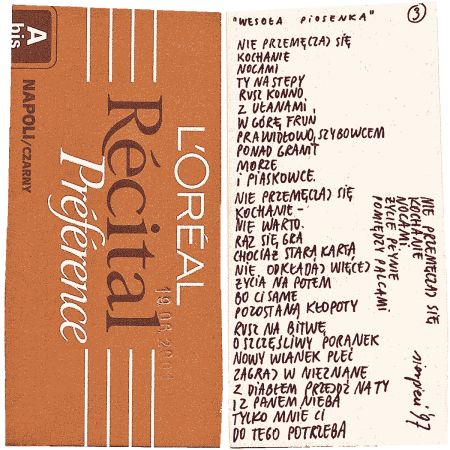 A
bis
NAPOLI/CZARNY
L'ORÉAL
Récital
Préférence
"WESOŁA PIOSENKA"
3
NIE PRZEMĘCZAJ SIĘ
KOCHANIE
NOCAMI
TY NA STEPY
RUSZ KONNO
Z UŁANAMI,
W GÓRĘ FRUŃ
PRAWIDŁOWO, SZYBOWCEM
PONAD GRANIT
MORZE
I PIASKOWCE.
NIE PRZEMĘCZAJ SIĘ
KOCHANIE -
NIE WARTO.
RAZ SIĘ GRA
CHOCIAŻ STARĄ KARTĄ
NIE ODKŁADAJ WIĘCEJ
ŻYCIA NA POTEM
BO CI SAME
POZOSTANĄ KŁOPOTY
RUSZ NA BITWĘ
O SZCZĘŚLIWY PORANEK
NOWY WIANEK PLEĆ
ZAGRAJ W NIEZNANE
Z DIABŁEM PRZEJDŹ NA TY
I Z PANEM NIEBA
TYLKO MNIE CI
DO TEGO POTRZEBA
NIE PRZEMĘCZAJ SIĘ
KOCHANIE
NOCAMI
ŻYCIE PŁYNIE
POMIĘDZY PALCAMI
sierpień '97